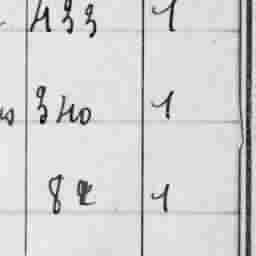 433 1
340 1
82 1